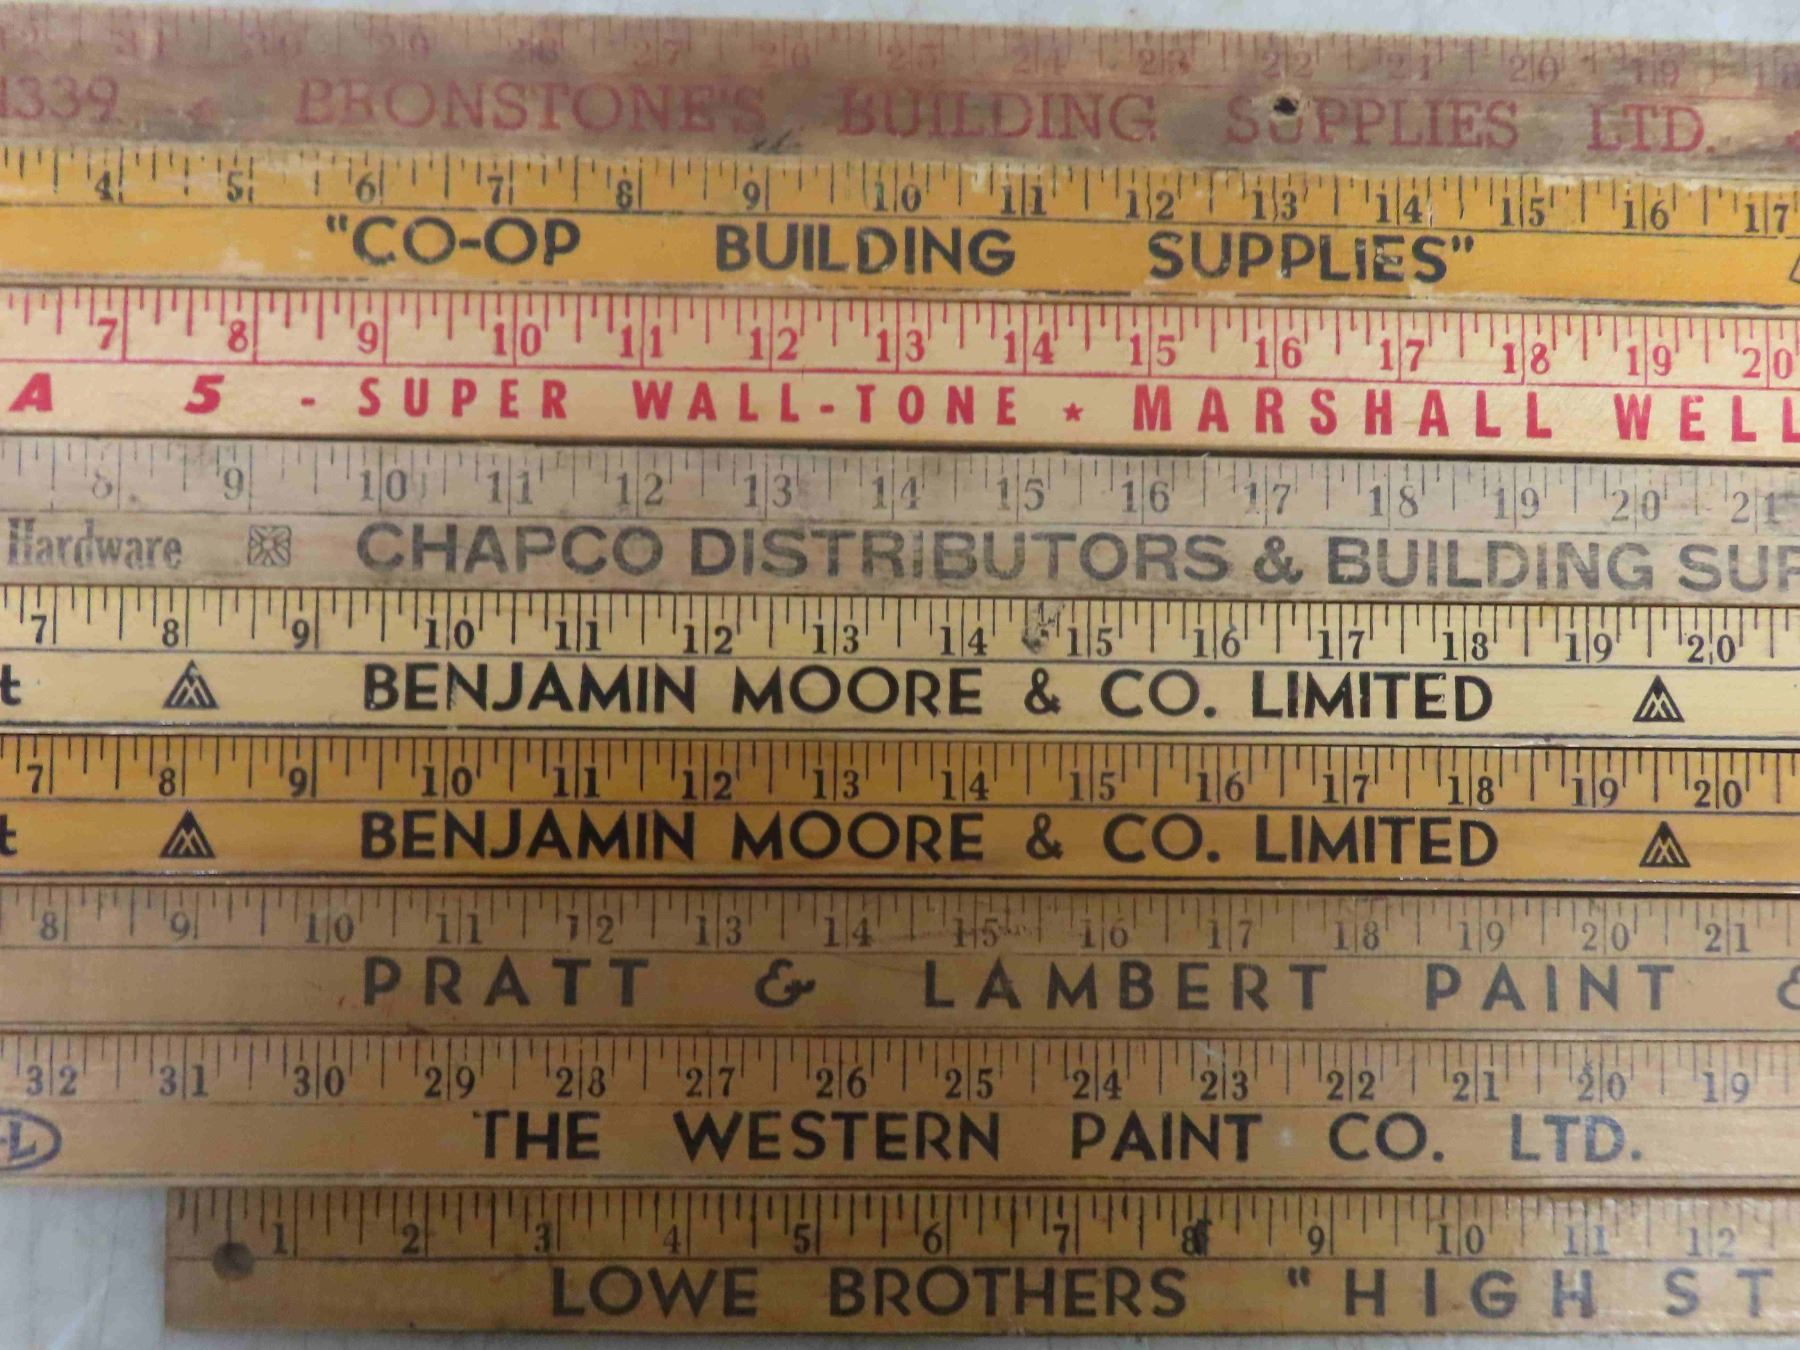 31 30 29 28 27 26 25 24 23 22 21 20 19 18
1339 BRONSTONE'S BUILDING SUPPLIES LTD.
4 5 6 7 8 9 10 11 12 13 14 15 16 17
"CO-OP BUILDING SUPPLIES"
7 8 9 10 11 12 13 14 15 16 17 18 19 20
A 5 - SUPER WALL-TONE * MARSHALL WELL
8 9 10 11 12 13 14 15 16 17 18 19 20 21
Hardware CHAPCO DISTRIBUTORS & BUILDING SUP
7 8 9 10 11 12 13 14 15 16 17 18 19 20
t BENJAMIN MOORE & CO. LIMITED
7 8 9 10 11 12 13 14 15 16 17 18 19 20
t BENJAMIN MOORE & CO. LIMITED
8 9 10 11 12 13 14 15 16 17 18 19 20 21
PRATT & LAMBERT PAINT &
32 31 30 29 28 27 26 25 24 23 22 21 20 19
THE WESTERN PAINT CO. LTD.
1 2 3 4 5 6 7 8 9 10 11 12
LOWE BROTHERS "HIGH ST